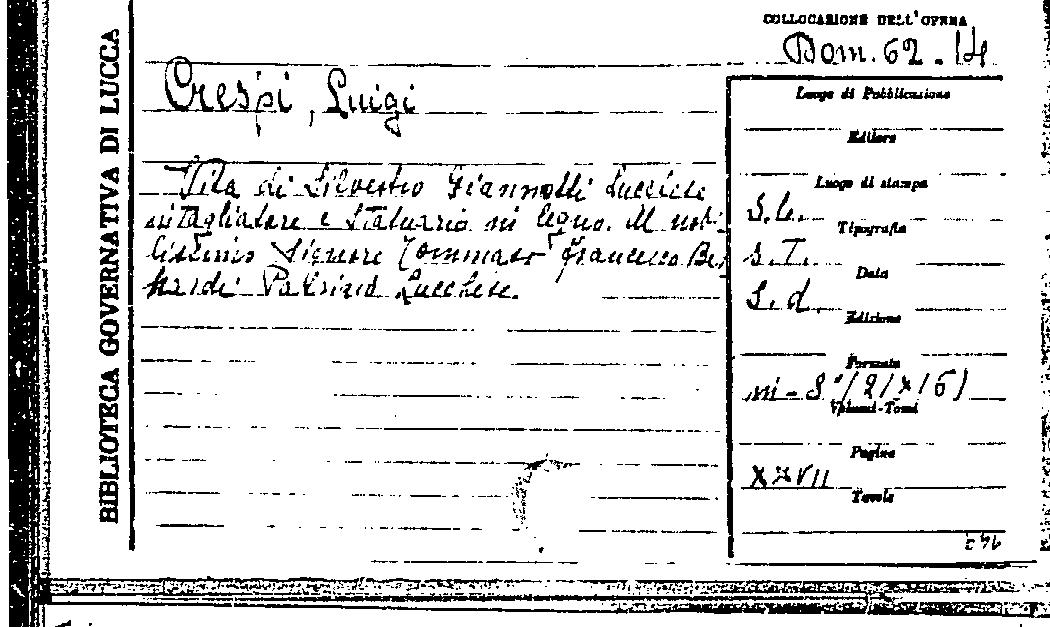 BIBLIOTECA GOVERNATIVA DI LUCCA
COLLOCAZIONE DELL'OPERA
Dom. 62 - 14
Crespi, Luigi
Vita di Silvestro Giannotti Lucchese
intagliatore e Statuario in legno. Al nobi-
lissimo Signore Tommaso Francesco Ber
nardi Patrizio Lucchese.
Luogo di Pubblicazione
Editore
Luogo di stampa
S.l.
Tipografia
S.T.
Data
S.d.
Edizione
Formato
in - 8°
Volumi-Tomi
Pagine
XXVII
Tavole